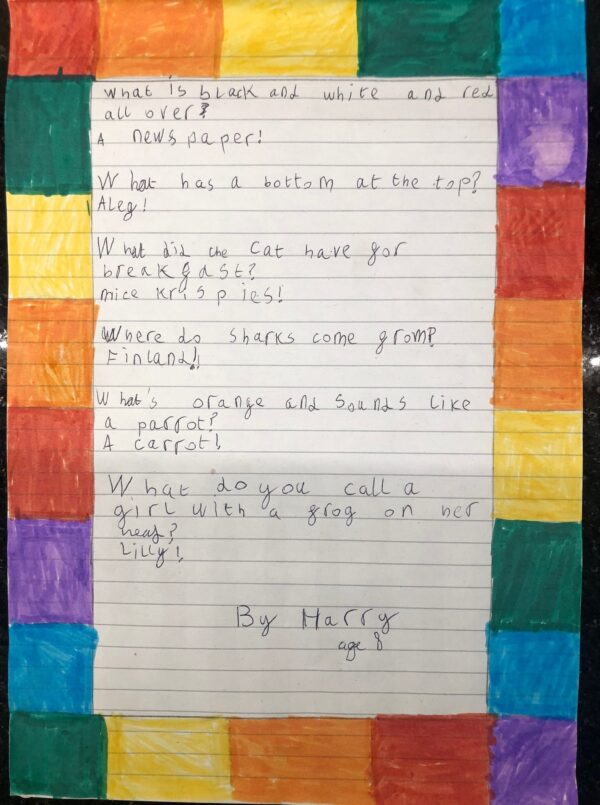 what is black and white and red
all over?
A newspaper!
What has a bottom at the top?
A leg!
What did the cat have for
breakfast?
mice krispies!
Where do sharks come from?
Finland!!
What's orange and sounds like
a parrot?
A carrot!
What do you call a
girl with a frog on her
head?
Lilly!
By Harry
age 8